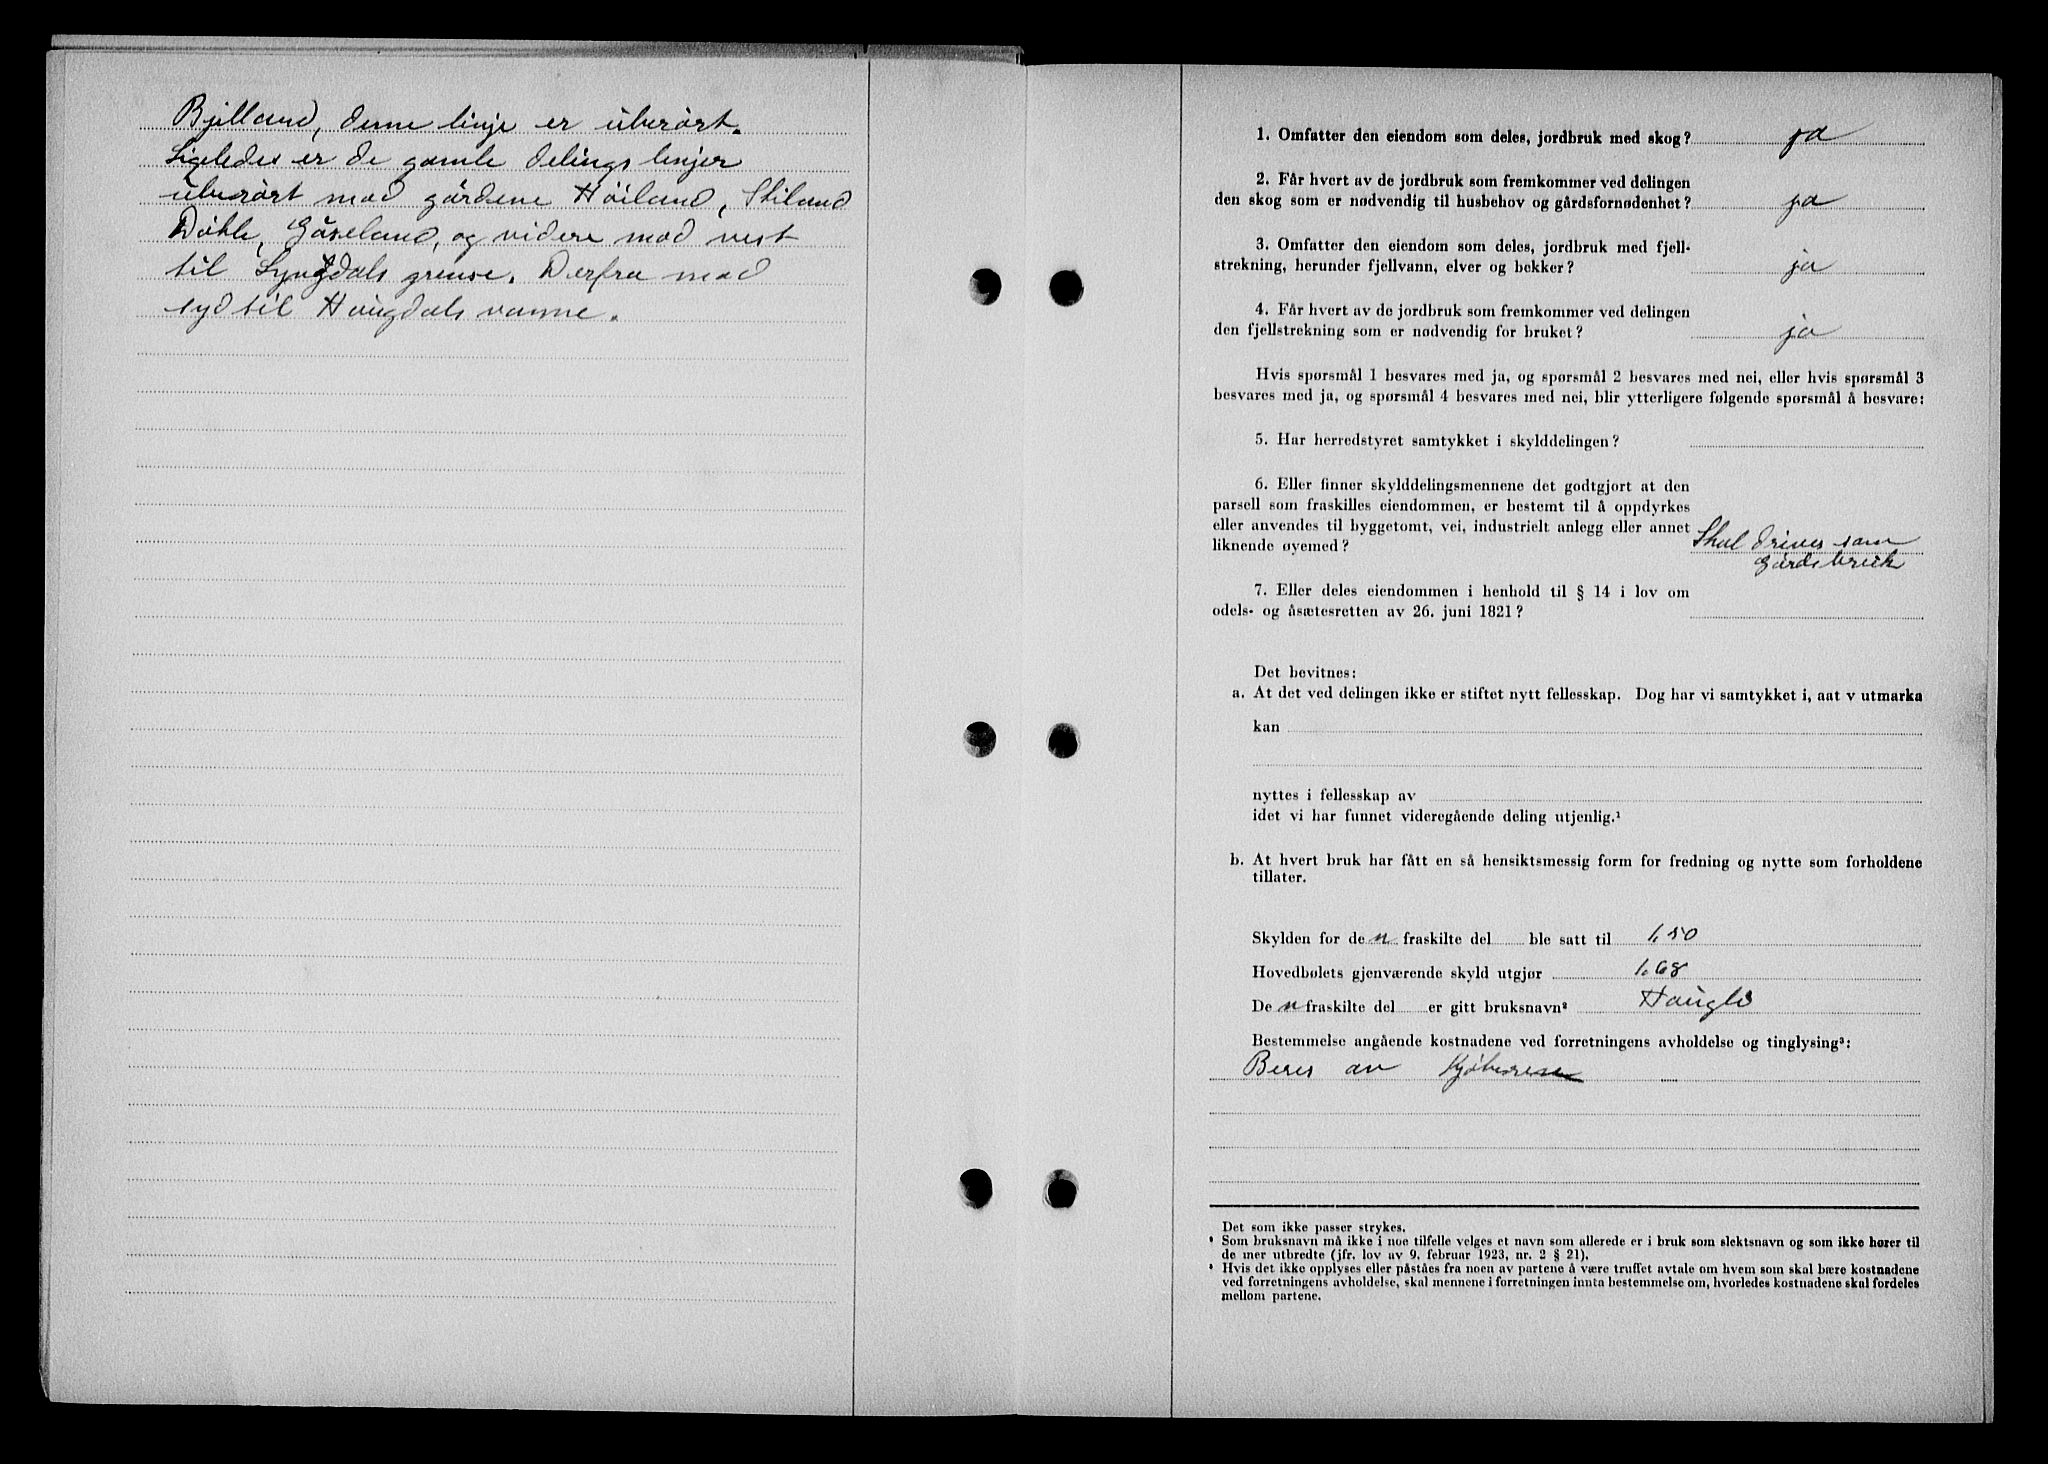 Bjelland, denne linje er uberørt.
Ligeledes er de gamle delings linjer
uberørt mod gårdene Høiland, Skiland
Døble, Gåseland, og videre mod vest
til Lyngdals grense. Derfra mod
syd til Haugdals vanne.
1. Omfatter den eiendom som deles, jordbruk med skog? ja
2. Får hvert av de jordbruk som fremkommer ved delingen
den skog som er nødvendig til husbehov og gårdsfornødenhet? ja
3. Omfatter den eiendom som deles, jordbruk med fjell-
strekning, herunder fjellvann, elver og bekker? ja
4. Får hvert av de jordbruk som fremkommer ved delingen
den fjellstrekning som er nødvendig for bruket? ja
Hvis spørsmål 1 besvares med ja, og spørsmål 2 besvares med nei, eller hvis spørsmål 3
besvares med ja, og spørsmål 4 besvares med nei, blir ytterligere følgende spørsmål å besvare:
5. Har herredstyret samtykket i skylddelingen?
6. Eller finner skylddelingsmennene det godtgjort at den
parsell som fraskilles eiendommen, er bestemt til å oppdyrkes
eller anvendes til byggetomt, vei, industrielt anlegg eller annet
liknende øyemed? Skal drives som
gårdsbruk
7. Eller deles eiendommen i henhold til § 14 i lov om
odels- og åsætesretten av 26. juni 1821?
Det bevitnes:
a. At det ved delingen ikke er stiftet nytt fellesskap. Dog har vi samtykket i, aat v utmarka
kan
nyttes i fellesskap av
idet vi har funnet videregående deling utjenlig.¹
b. At hvert bruk har fått en så hensiktsmessig form for fredning og nytte som forholdene
tillater.
Skylden for den fraskilte del ble satt til 1,50
Hovedbølets gjenværende skyld utgjør 1.68
Den fraskilte del er gitt bruksnavn² Hauglo
Bestemmelse angående kostnadene ved forretningens avholdelse og tinglysing³:
Beres av Kjøberen
Det som ikke passer strykes.
² Som bruksnavn må ikke i noe tilfelle velges et navn som allerede er i bruk som slektsnavn og som ikke hører til
de mer utbredte (jfr. lov av 9. februar 1923, nr. 2 § 21).
³ Hvis det ikke opplyses eller påståes fra noen av partene å være truffet avtale om hvem som skal bære kostnadene
ved forretningens avholdelse, skal mennene i forretningen innta bestemmelse om, hvorledes kostnadene skal fordeles
mellom partene.